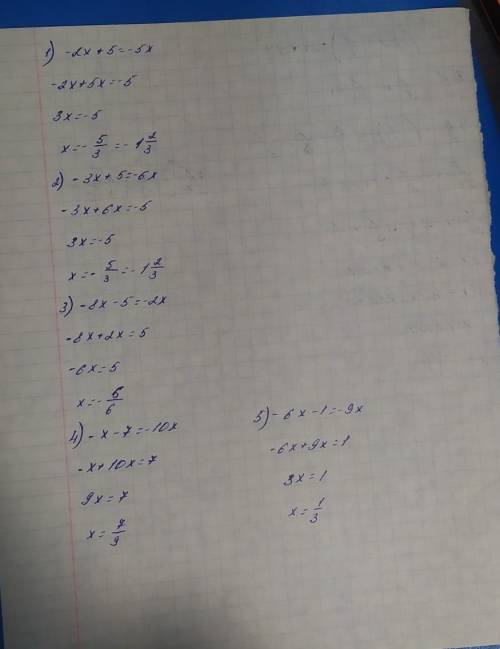 1) -2x+5=-5x
-2x+5x=-5
3x=-5
x=-5/3=-1 2/3
2) -3x+5=-6x
-3x+6x=-5
3x=-5
x=-5/3=-1 2/3
3) -8x-5=-2x
-8x+2x=5
-6x=5
x=-5/6
4) -x-7=-10x
-x+10x=7
9x=7
x=7/9
5) -6x-1=-9x
-6x+9x=1
3x=1
x=1/3